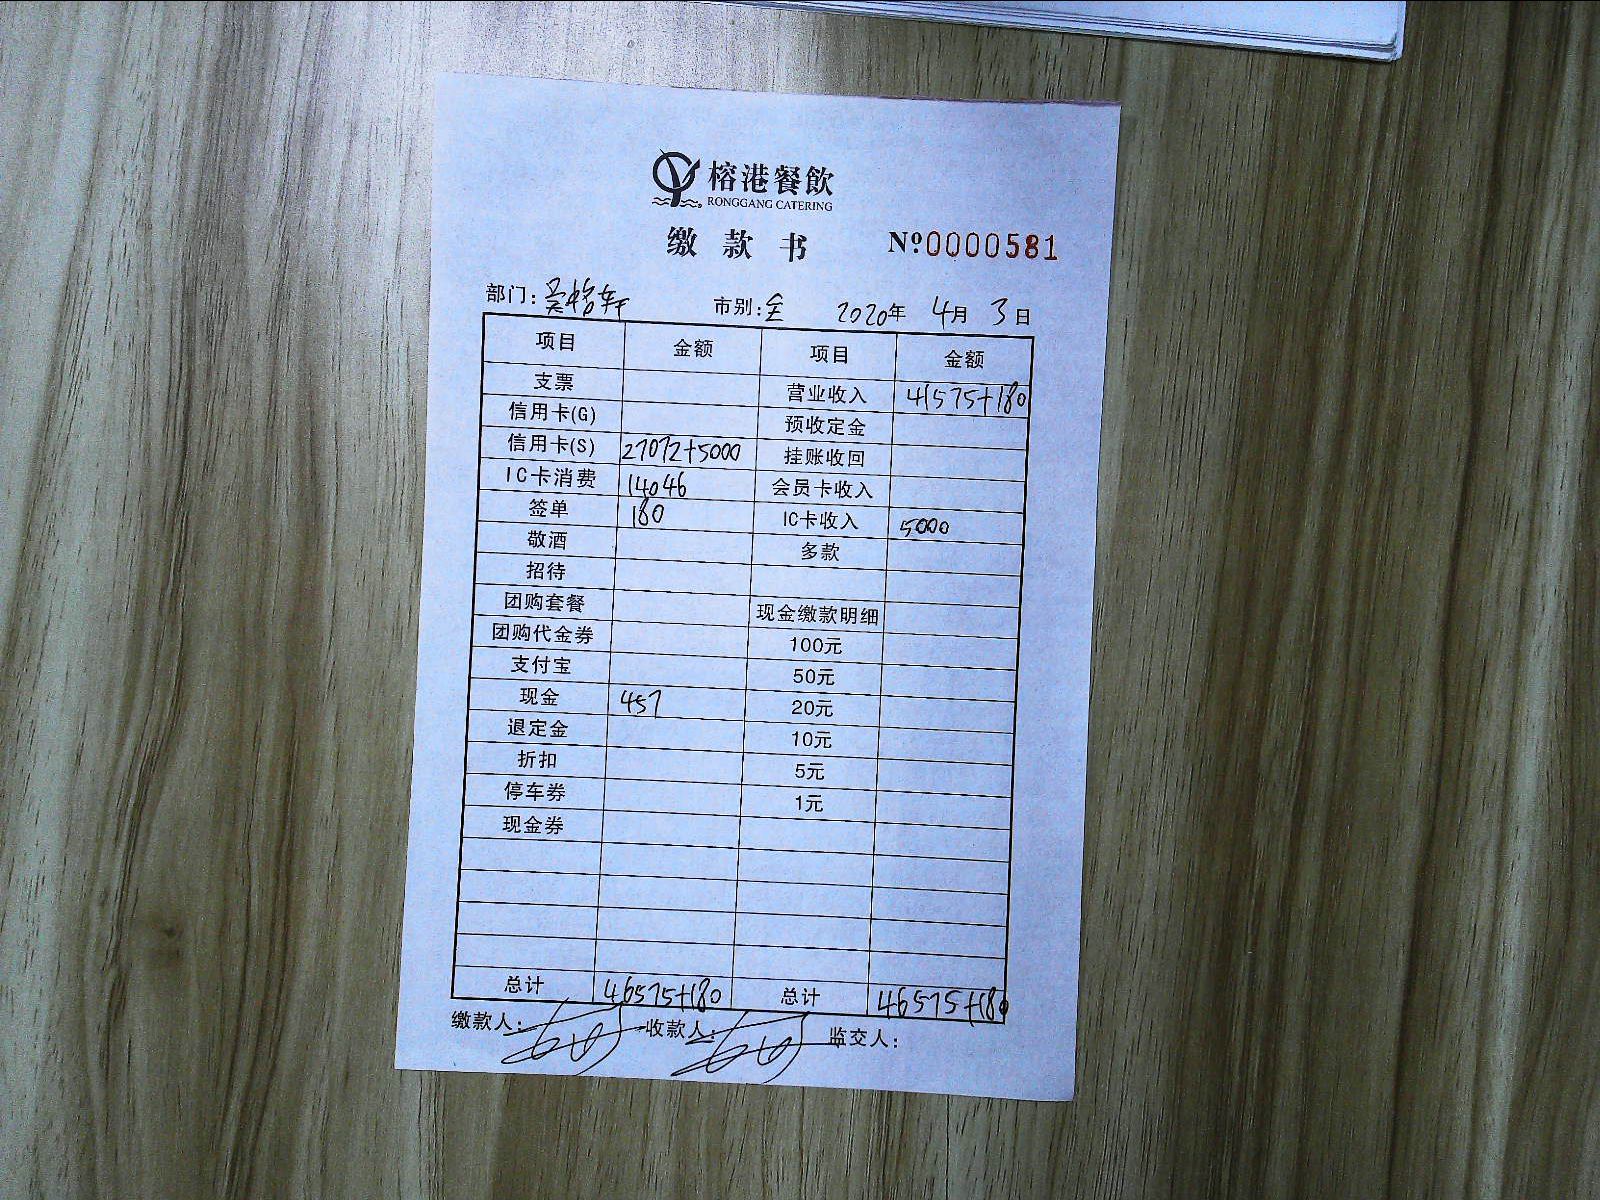 榕港餐飲
RONGGANG CATERING
缴款书 Nº0000581
部门: 市别:全 2020年 4月 3日
项目 金额 项目 金额
支票 营业收入 41575+180
信用卡(G) 预收定金
信用卡(S) 27072+5000 挂账收回
IC卡消费 14046 会员卡收入
签单 180 IC卡收入 5000
敬酒 多款
招待
团购套餐 现金缴款明细
团购代金券 100元
支付宝 50元
现金 457 20元
退定金 10元
折扣 5元
停车券 1元
现金券
总计 46575+180 总计 46575+180
缴款人: 收款人: 监交人: